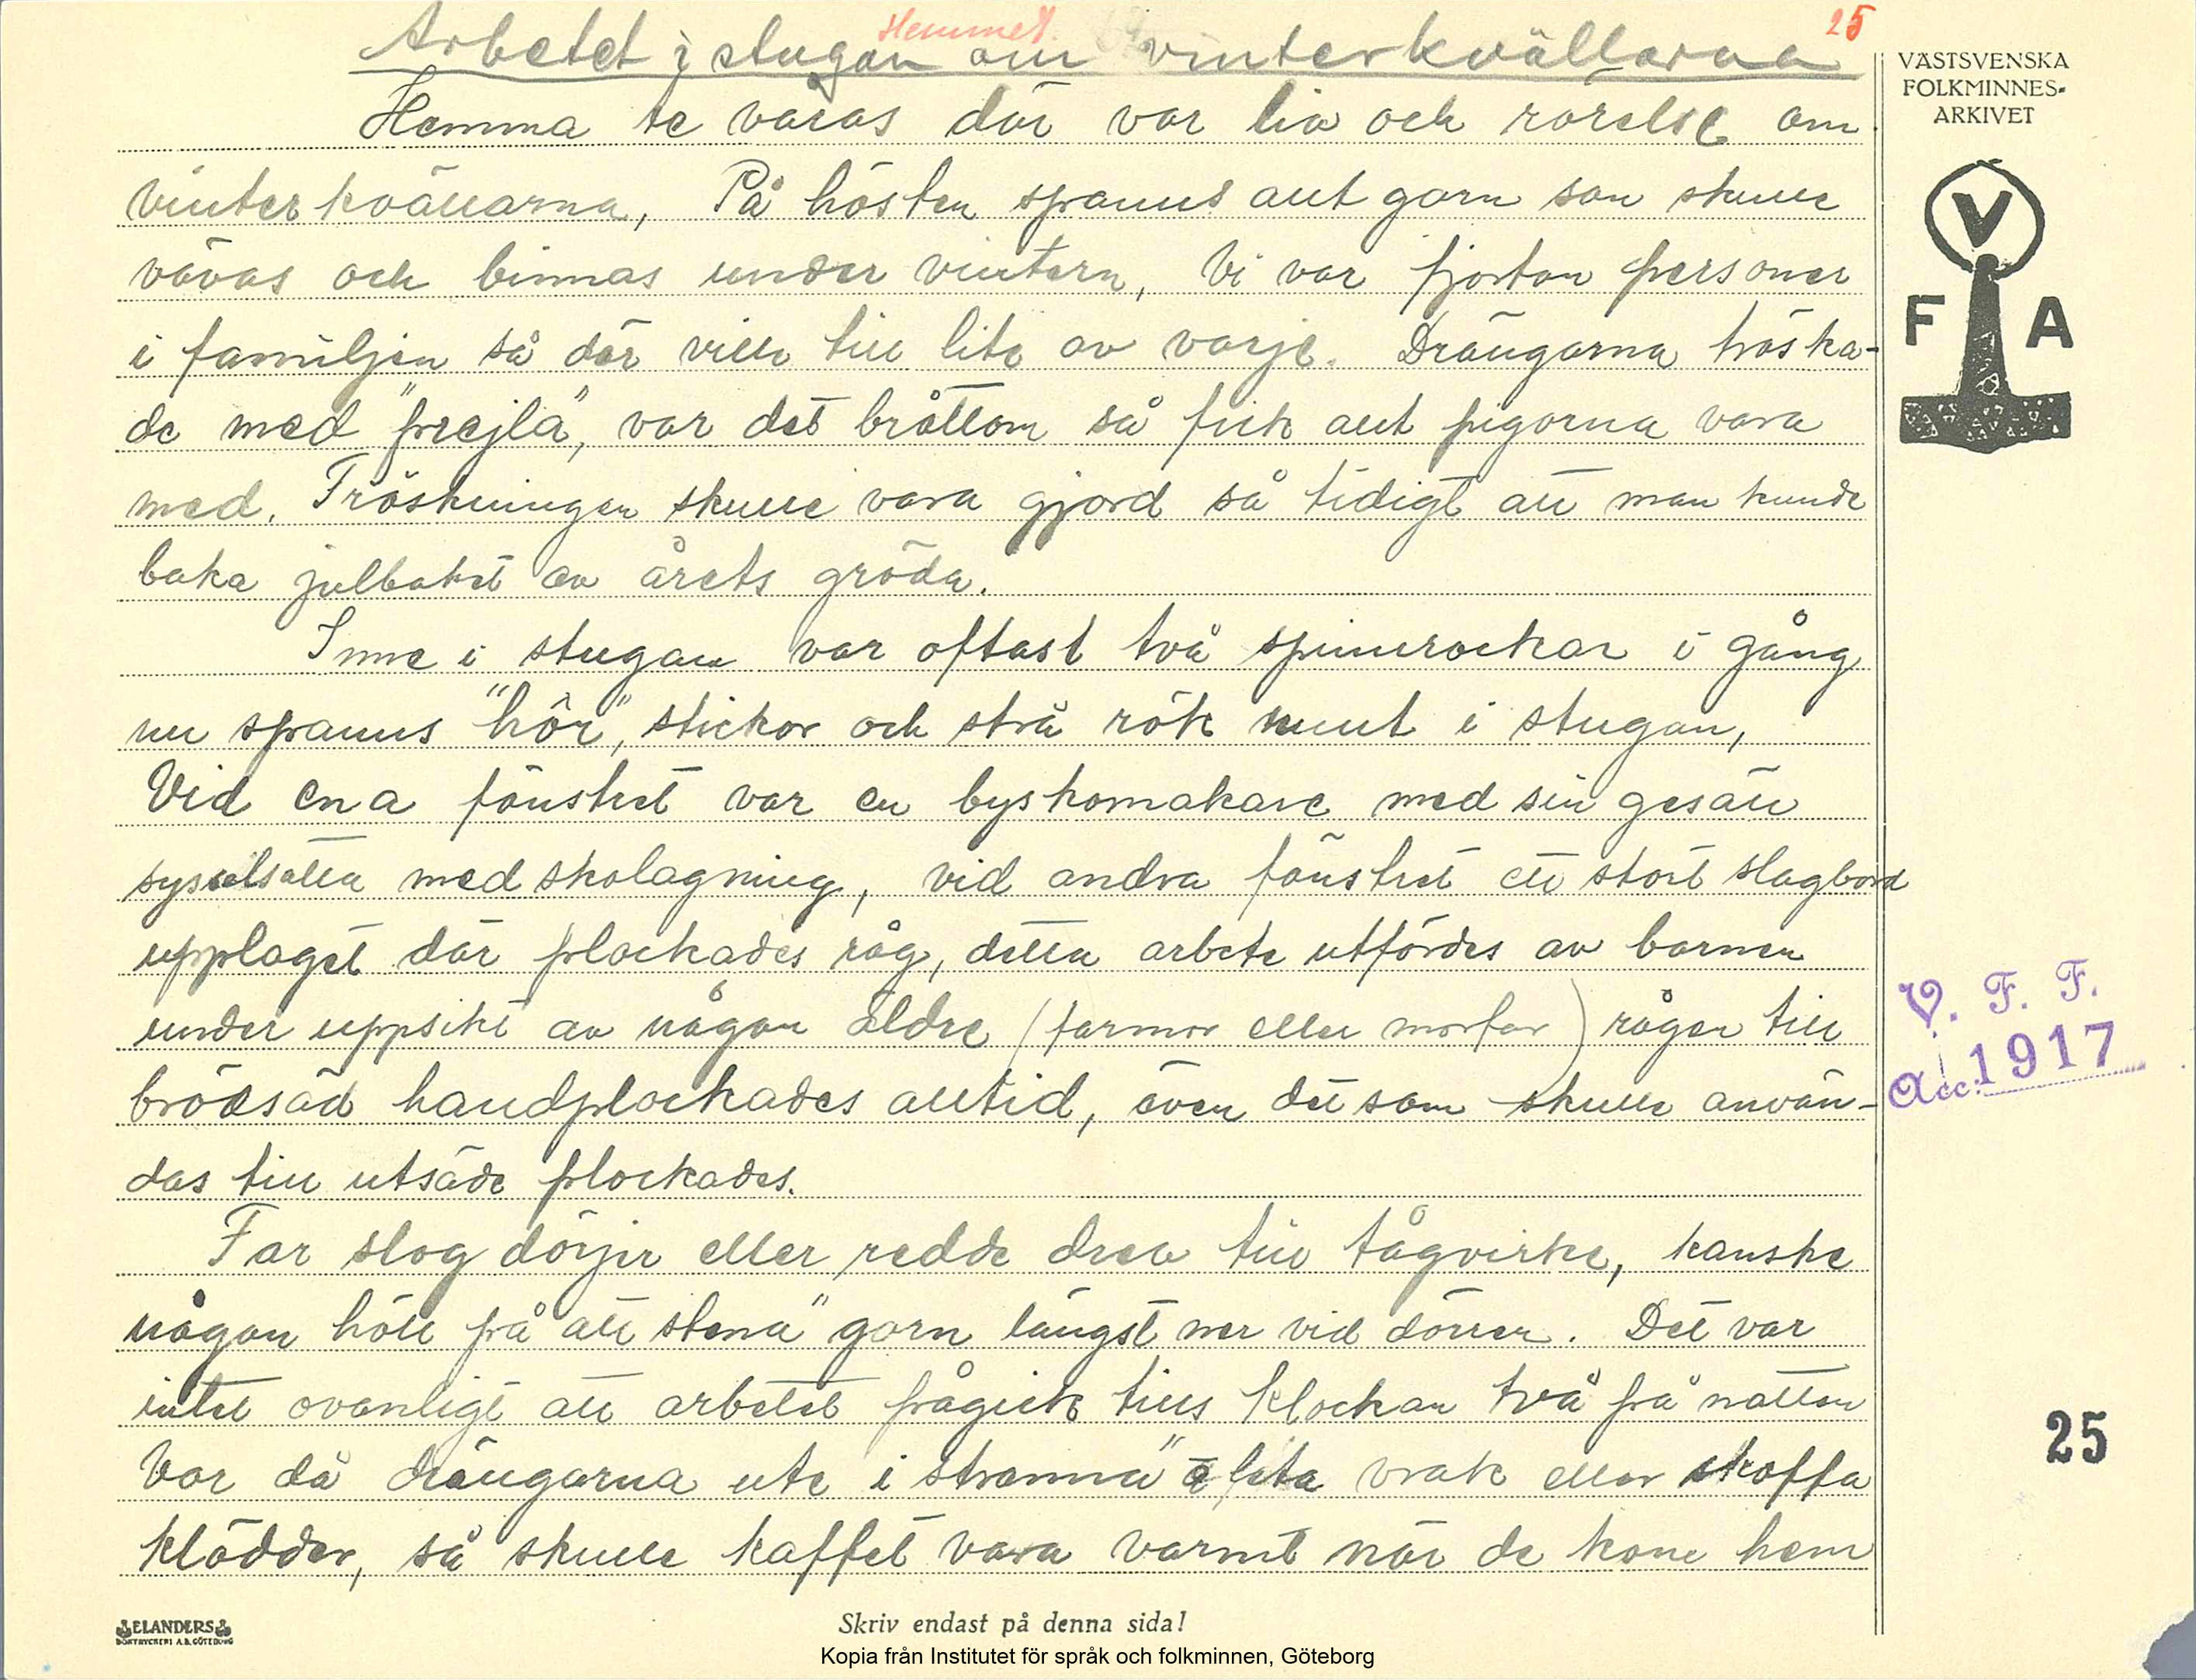 Hemmet. 25
Arbetet i stugan om vinterkvällarna
VÄSTSVENSKA
FOLKMINNES-
ARKIVET
Hemma te väras där var liv och rörelse om
vinterkvällarna, På hösten spanns allt garn som skulle
vävas och binnas under vintern, Vi var fjorton personer
V
F A
i familjen så där vill till lite av varje. Drängarna tröska-
de med "prejla", var det bråttom så fick allt pigorna vara
med. Tröskningen skulle vara gjord så tidigt att man kunde
baka julbaket av årets gröda.
Inne i stugan var oftast två spinnrockar i gång
nu spanns "hör", stickor och strå rök runt i stugan,
Vid ena fönstret var en byskomakare med sin gesäll
sysselsatta med skolagning, vid andra fönstret ett stort slagbord
upplaget där plockades råg, detta arbete utfördes av barnen
under uppsikt av någon äldre (farmor eller morfar) rågen till
brödsäd handplockades alltid, även det som skulle använ-
das till utsäde plockades.
V. F. F.
Acc. 1917
Far slog dörjer eller redde drev till tågvirke, kanske
någon höll på att stena" garn längst ner vid dörren. Det var
intet ovanligt att arbetet pågick tills klockan två på natten
Var då drängarna ute i stranna" å leta vrak eller skaffa
klädder, så skulle kaffet vara varmt när de kom hem
25
ELANDERS
BOKTRYCKERI A.B. GÖTEBORG
Skriv endast på denna sida!
Kopia från Institutet för språk och folkminnen, Göteborg